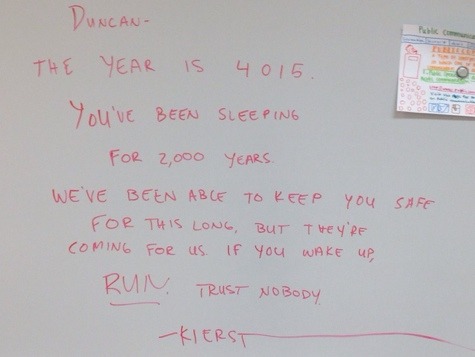 DUNCAN-
THE YEAR IS 4015.
YOU'VE BEEN SLEEPING
FOR 2,000 YEARS.
WE'VE BEEN ABLE TO KEEP YOU SAFE
FOR THIS LONG, BUT THEY'RE
COMING FOR US. IF YOU WAKE UP,
RUN. TRUST NOBODY.
—KIERST
Public